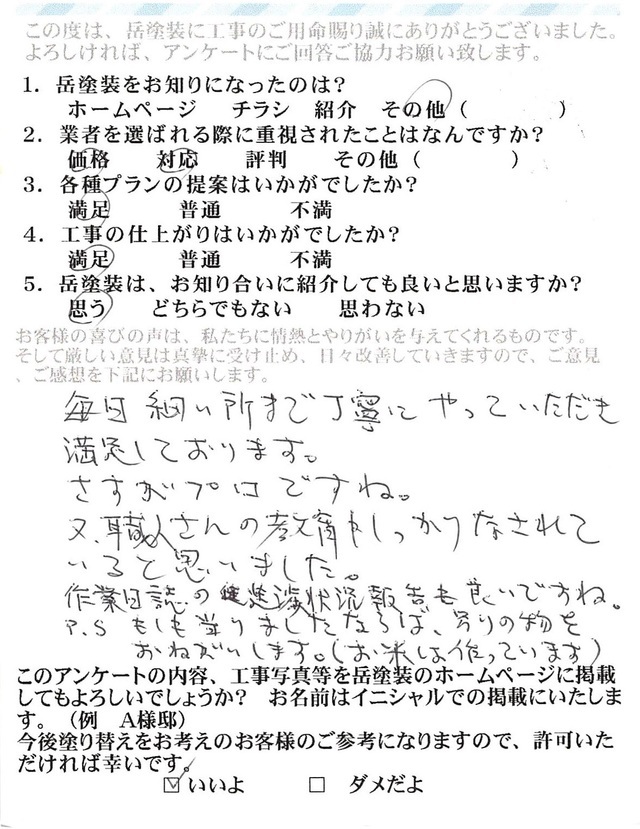 この度は、岳塗装に工事のご用命賜り誠にありがとうございました。
よろしければ、アンケートにご回答ご協力お願い致します。
1．岳塗装をお知りになったのは？
ホームページ　チラシ　紹介　その他（　　　　）
2．業者を選ばれる際に重視されたことはなんですか？
価格　対応　評判　その他（　　　　）
3．各種プランの提案はいかがでしたか？
満足　普通　不満
4．工事の仕上がりはいかがでしたか？
満足　普通　不満
5．岳塗装は、お知り合いに紹介しても良いと思いますか？
思う　どちらでもない　思わない
お客様の喜びの声は、私たちに情熱とやりがいを与えてくれるものです。
そして厳しい意見は真摯に受け止め、日々改善していきますので、ご意見
、ご感想を下記にお願いします。
毎日細い所まで丁寧にやっていただき
満足しております。
さすがプロですね。
又、職人さんの教育もしっかりなされて
いると思いました。
作業日誌の進捗状況報告も良いですね。
P.S もしも当りましたならば、有りの物を
おねがいします。（お米は作っています）
このアンケートの内容、工事写真等を岳塗装のホームページに掲載
してもよろしいでしょうか？　お名前はイニシャルでの掲載にいたしま
す。（例　A様邸）
今後塗り替えをお考えのお客様のご参考になりますので、許可いた
だければ幸いです。
☑ いいよ　□ ダメだよ